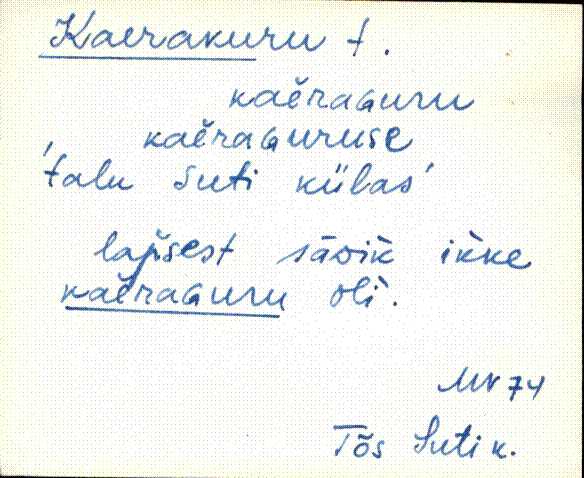 Kaerakuru t.
kaĕraGuru
kaĕraGuruse
'talu Suti külas'
lapsest sāḿik ikke
kaĕraGuru oli.
MN 74
Tõs Suti k.